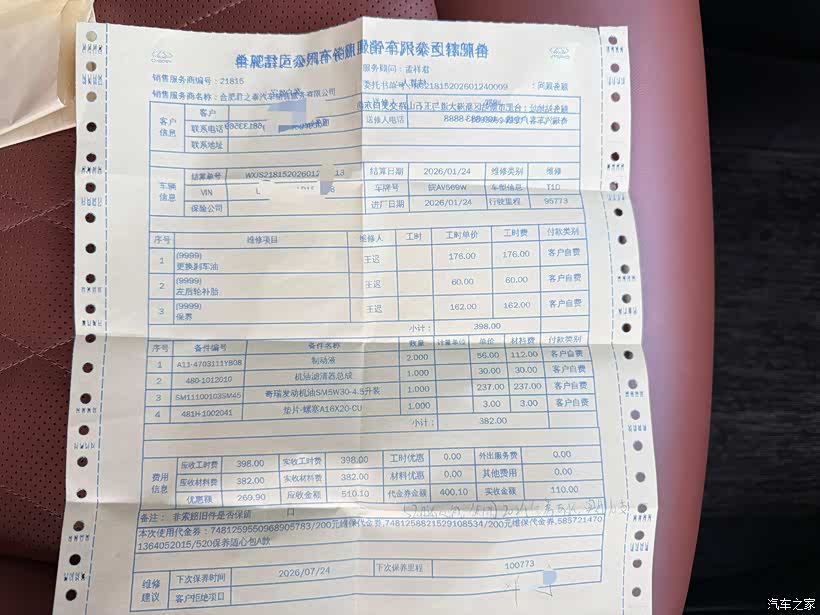 服务顾问：孟祥君
销售服务商编号：21815
委托书单号
02181520260124​0009
销售服务商名称：合肥君之泰汽车销售服务有限公司
客户信息 客户
联系电话 送修人电话
联系地址
车辆信息 结算单号 WXJS218152026012 13 结算日期 2026/01/24 维修类别 维修
VIN L 8 车牌号 皖AV569W 车型信息 T1D
保险公司 进厂日期 2026/01/24 行驶里程 95773
序号 维修项目 维修人 工时 工时单价 工时费 付款类别
1 (9999) 更换刹车油 王迟 176.00 176.00 客户自费
2 (9999) 左后轮补胎 王迟 60.00 60.00 客户自费
3 (9999) 保养 王迟 162.00 162.00 客户自费
小计： 398.00
序号 备件编号 备件名称 数量 计量单位 单价 材料费 付款类别
1 A11-4703111YB08 制动液 2.000 56.00 112.00 客户自费
2 480-1012010 机油滤清器总成 1.000 30.00 30.00 客户自费
3 SM11100103SM45 奇瑞发动机油SM5W30-4.5升装 1.000 237.00 237.00 客户自费
4 481H-1002041 垫片-螺塞A16X20-CU 1.000 3.00 3.00 客户自费
小计： 382.00
费用信息 应收工时费 398.00 实收工时费 398.00 工时优惠 0.00 外出服务费 0.00
应收材料费 382.00 实收材料费 382.00 材料优惠 0.00 其他费用 0.00
优惠额 269.90 应收金额 510.10 代金券金额 400.10 实收金额 110.00
备注： 非索赔旧件是否保留 口
本次使用代金券：7481259550968905783/200元维保代金券,7481258821529108534/200元维保代金券,585721470
1364052015/520保养随心包A款
维修建议 下次保养时间 2026/07/24 下次保养里程 100773
客户拒绝项目
汽车之家